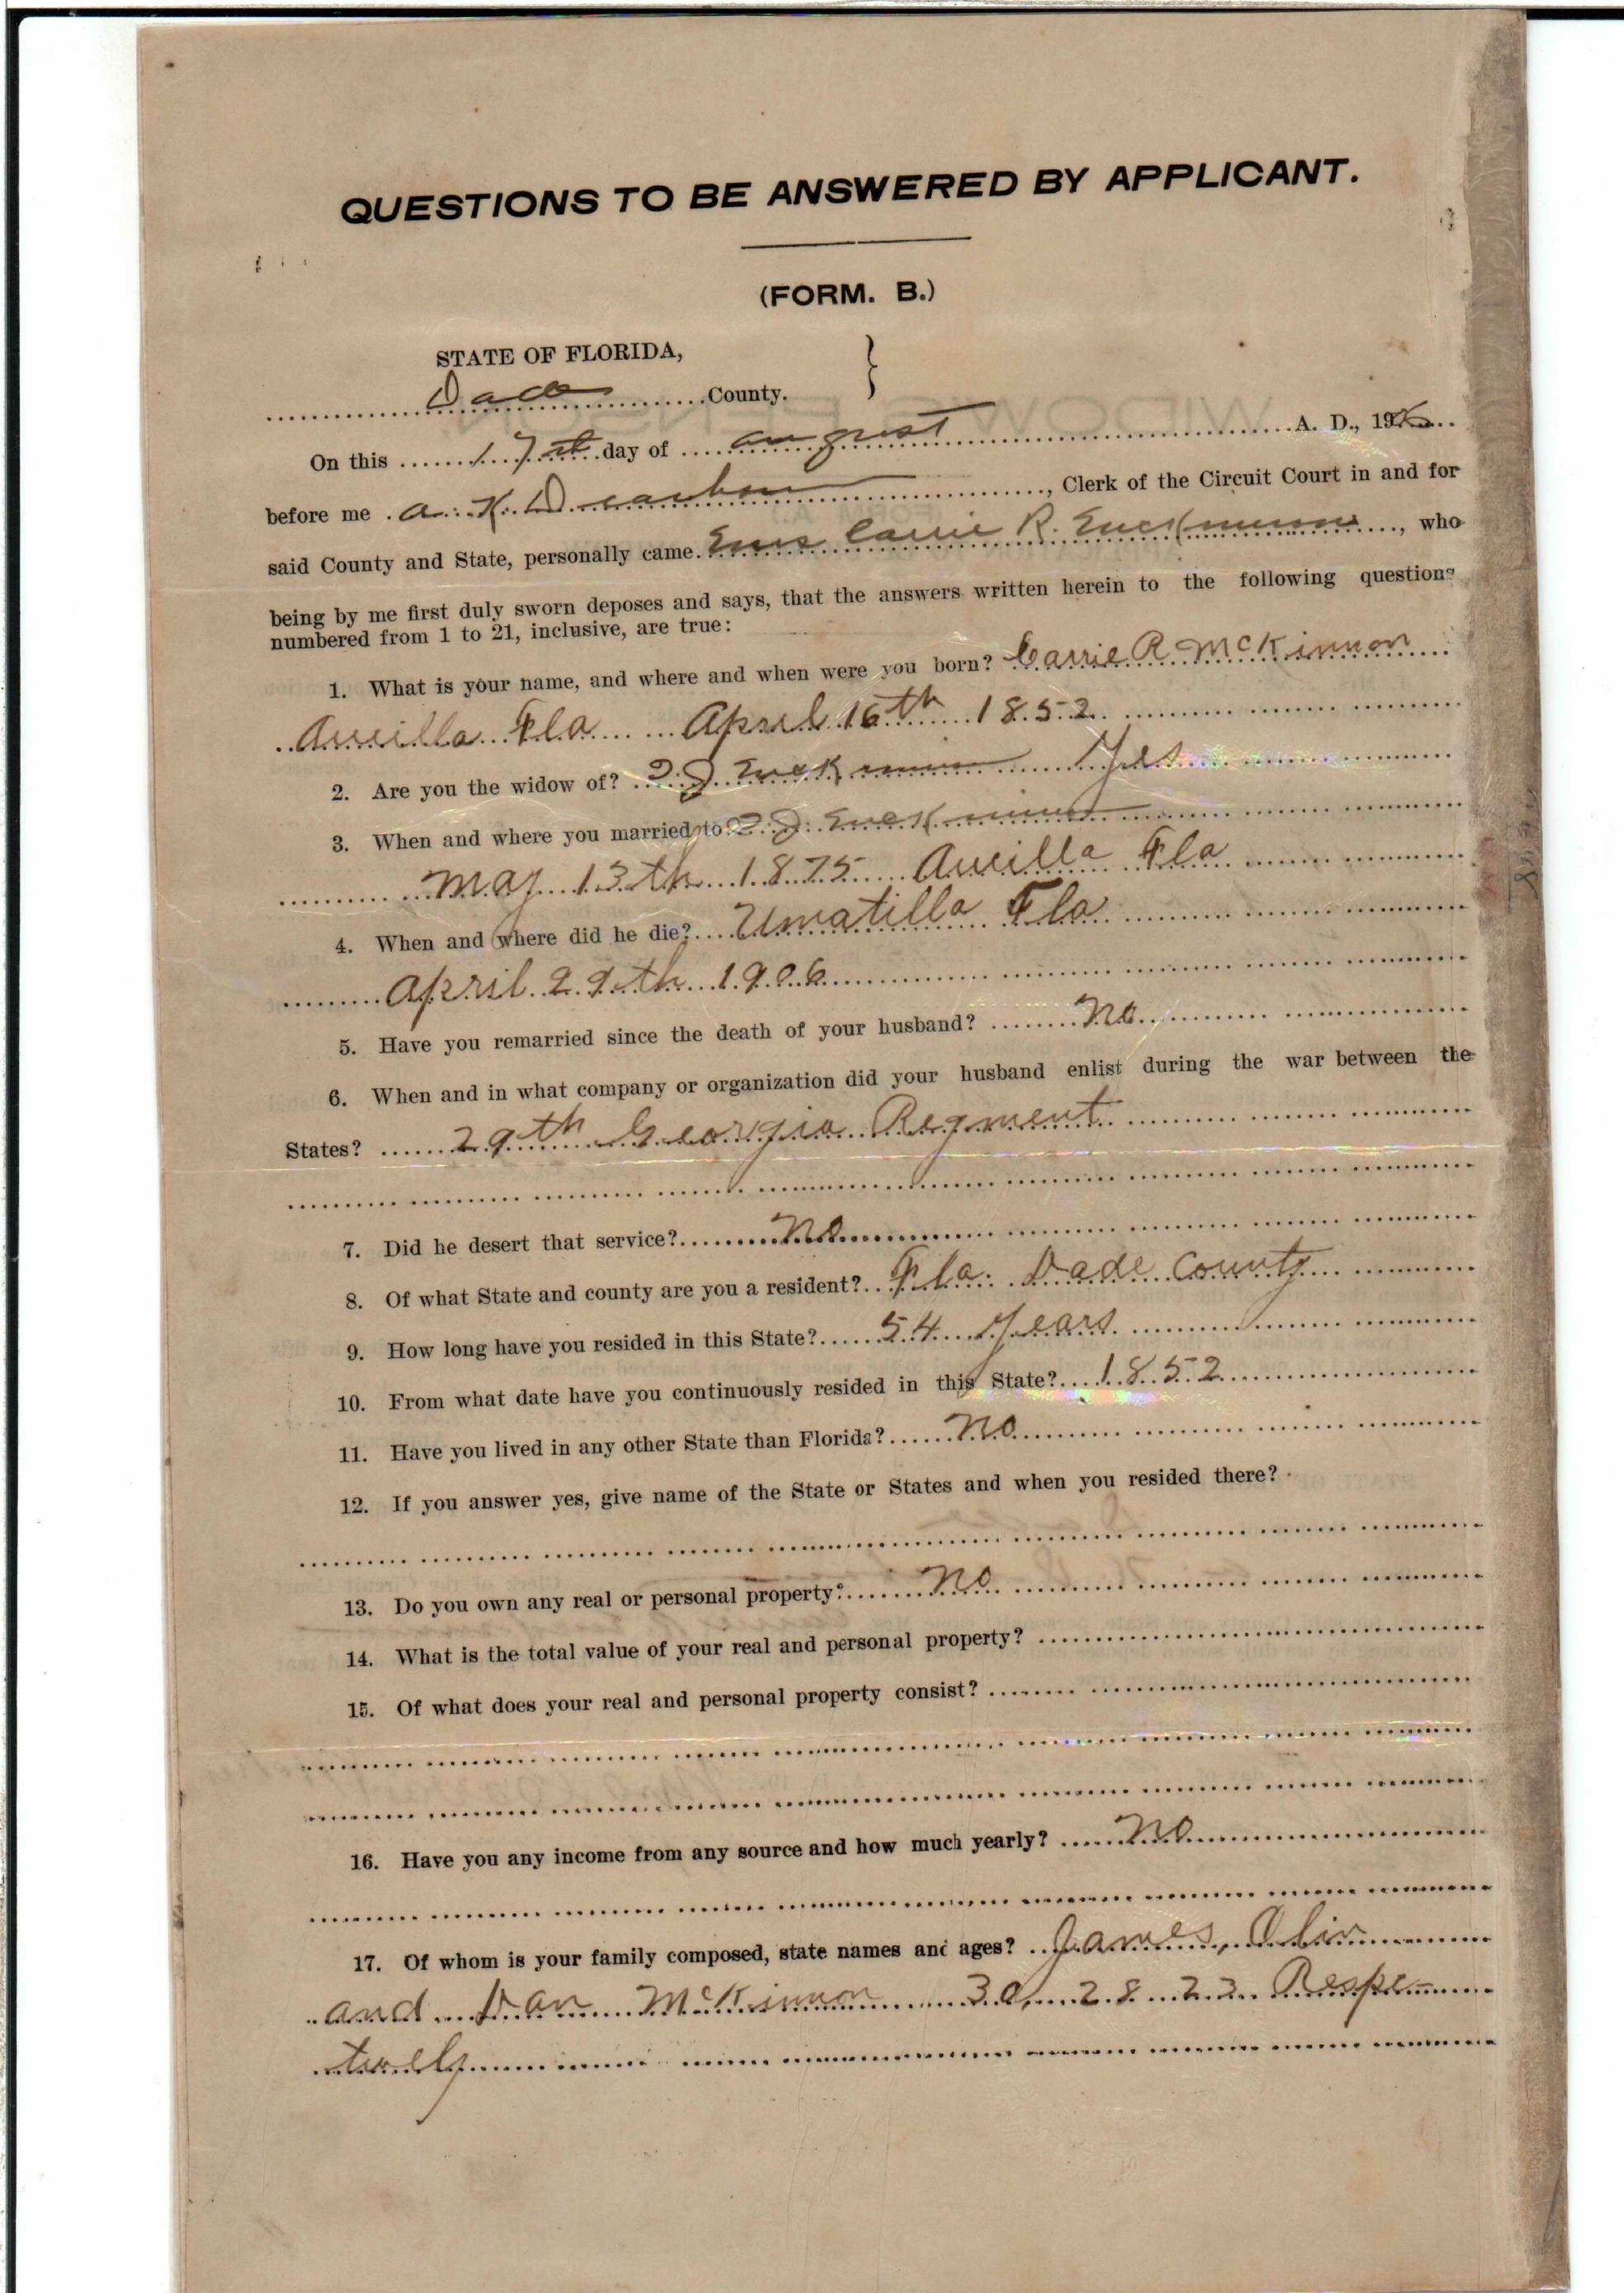 QUESTIONS TO BE ANSWERED BY APPLICANT.
(FORM. B.)
STATE OF FLORIDA,
Dade County.
On this 17th day of august A. D., 190
before me A. K. D , Clerk of the Circuit Court in and for
said County and State, personally came Mrs Carrie R. McKinnon, who
being by me first duly sworn deposes and says, that the answers written herein to the following questions
numbered from 1 to 21, inclusive, are true:
1. What is your name, and where and when were you born? Carrie R McKinnon
Aucilla Fla April 16th 1852
2. Are you the widow of? McKinnon Yes
3. When and where you married to? McKinnon
May 13th 1875 Aucilla Fla
4. When and where did he die? Umatilla Fla
April 29th 1906
5. Have you remarried since the death of your husband? No
6. When and in what company or organization did your husband enlist during the war between the
States? 29th Georgia Regment
7. Did he desert that service? No
8. Of what State and county are you a resident? Fla. Dade County
9. How long have you resided in this State? 54 Years
10. From what date have you continuously resided in this State? 1852
11. Have you lived in any other State than Florida? No
12. If you answer yes, give name of the State or States and when you resided there?
13. Do you own any real or personal property? No
14. What is the total value of your real and personal property?
15. Of what does your real and personal property consist?
16. Have you any income from any source and how much yearly? No
17. Of whom is your family composed, state names and ages? James, Olin
and Dan McKinnon 30, 28 23 Respe-
tively